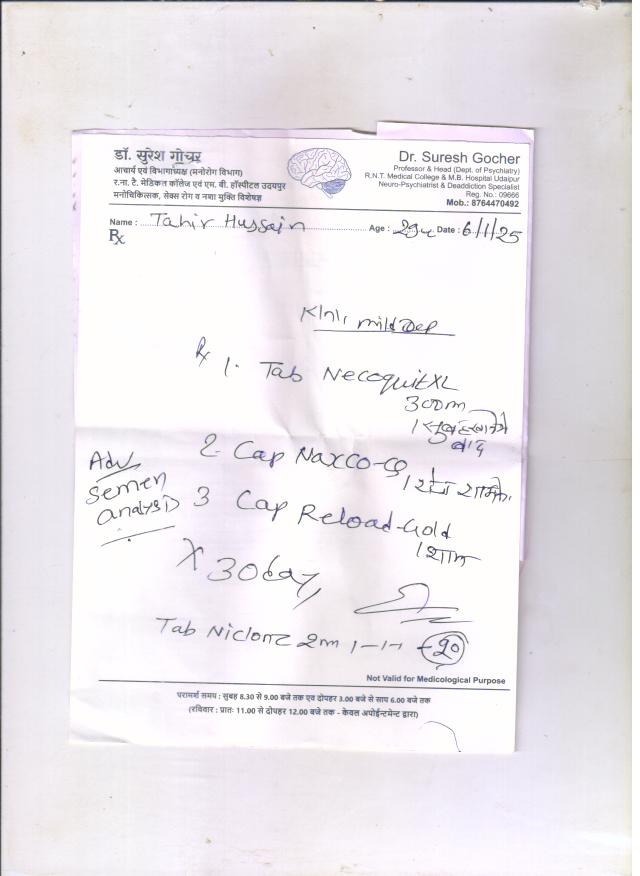 डॉ. सुरेश गोचर
आचार्य एवं विभागाध्यक्ष (मनोरोग विभाग)
र.ना. टै. मेडिकल कॉलेज एवं एम. बी. हॉस्पीटल उदयपुर
मनोचिकित्सक, सेक्स रोग व नशा मुक्ति विशेषज्ञ
Dr. Suresh Gocher
Professor & Head (Dept. of Psychiatry)
R.N.T. Medical College & M.B. Hospital Udaipur
Neuro-Psychiatrist & Deaddiction Specialist
Reg. No.: 09666
Mob.: 8764470492
Name : Tahir Hussain Age : 29 Date : 6/1/25
Rx
mild Dep
Rx 1. Tab Necoquit XL
300m
1 सुबह खाने के
बाद
2. Cap Naxco-
1 रोज शाम
Adv
Semen
analysis
3 Cap Reload-Gold
1 शाम
X 30 day
Tab 2m 1-1-1 20
Not Valid for Medicological Purpose
परामर्श समय : सुबह 8.30 से 9.00 बजे तक एवं दोपहर 3.00 बजे से सायं 6.00 बजे तक
(रविवार : प्रातः 11.00 से दोपहर 12.00 बजे तक - केवल अपोईन्टमेन्ट द्वारा)